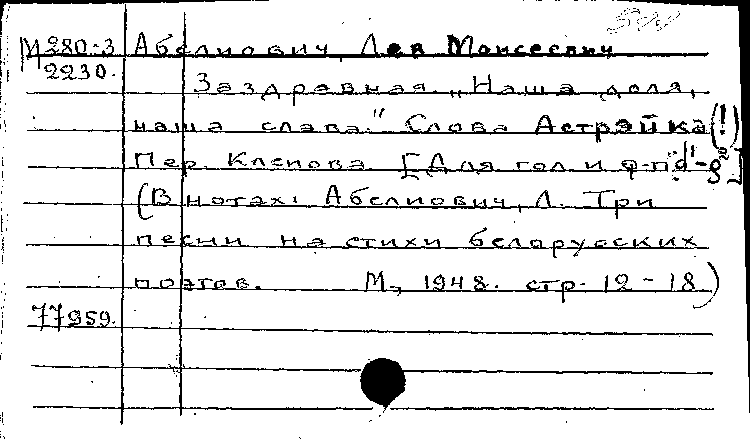 М 280-3 Абелиович, Лев Моисеевич
2230.
Заздравная „Наша доля,
наша слава." Слова Астрэйка(!)
Пер. Клепова [Для гол и ф-п d¹-g²]
(В нотах: Абелиович, Л. Три
песни на стихи белорусских
поэтов. М., 1948. стр. 12-18)
77959.